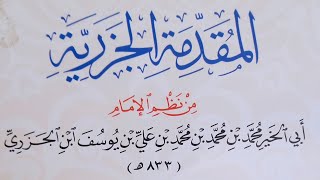 المُقَدِّمَةِ الجَزَرِيَّةِ
مِنْ نَظْمِ الإِمَامِ
أَبِي الخَيْرِ مُحَمَّدِ بْنِ مُحَمَّدِ بْنِ مُحَمَّدِ بْنِ عَلِيِّ بْنِ يُوسُفَ ابْنِ الجَزَرِيِّ
( ٨٣٣ هـ )